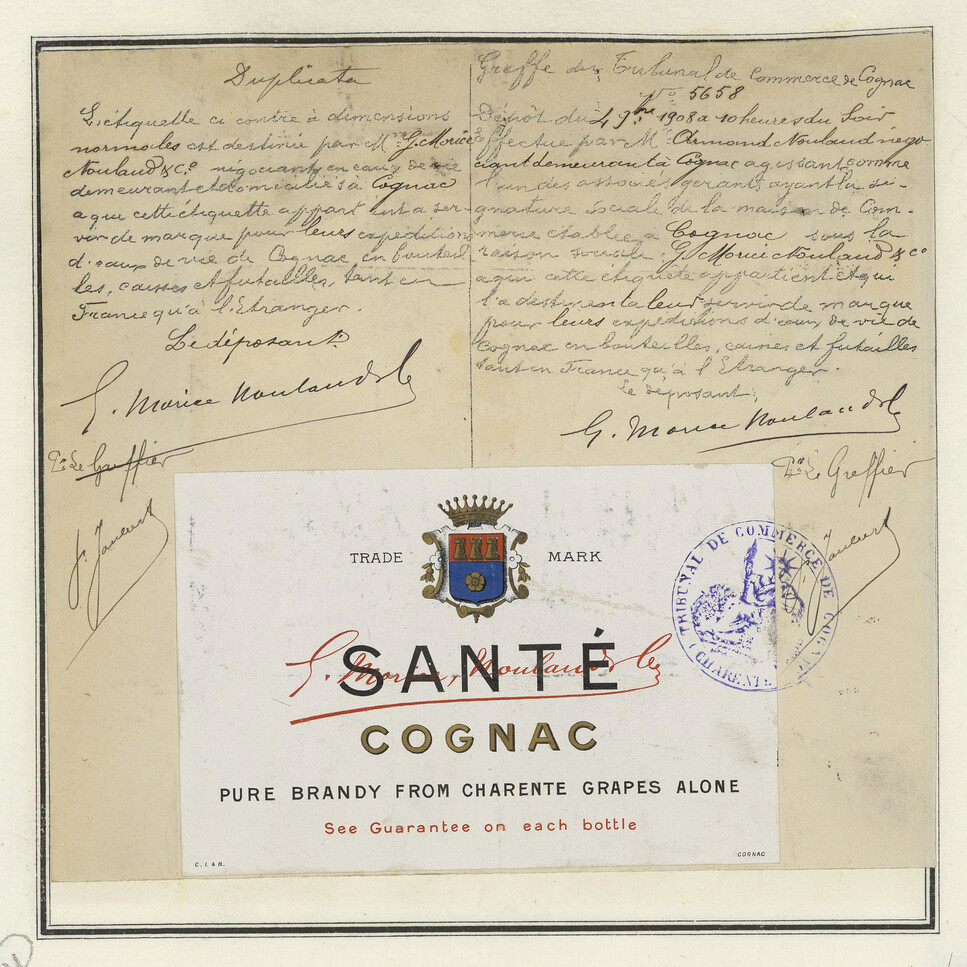 Duplicata
L'étiquette ci contre à dimensions
normales est destinée par Mrs G. Morice
Nouland & Co négociants en eaux de vie
demeurant et domiciliés à Cognac
a qui cette étiquette appartient a ser-
vir de marque pour leurs expéditions
d'eaux de vie de Cognac en bouteil-
les, caisses et futailles, tant en
France qu'à l'Etranger.
Le déposant
G. Morice Nouland & Co
Pr Le Greffier
Greffe du Tribunal de Commerce de Cognac
No 5658
Dépôt du 4 9bre 1908 a 10 heures du Soir
Effectué par Mr Armand Nouland négo
ciant demeurant à Cognac agissant comme
l'un des associés gerants ayant la si-
gnature sociale de la maison de Com-
merce etablie a Cognac sous la
raison sociale G. Morice Nouland & Co
a qui cette étiquete appartient et qui
l'a destinent a leur servir de marque
pour leurs expéditions d'eaux de vie de
Cognac en bouteilles, caisses et futailles
tant en France qu'à l'Etranger.
Le déposant,
G. Morice Nouland & Co
Pr Le Greffier
TRADE MARK
G. Morice, Nouland & Co
SANTÉ
COGNAC
PURE BRANDY FROM CHARENTE GRAPES ALONE
See Guarantee on each bottle
C. I. & B.
COGNAC
TRIBUNAL DE COMMERCE DE COGNAC
(CHARENTE)